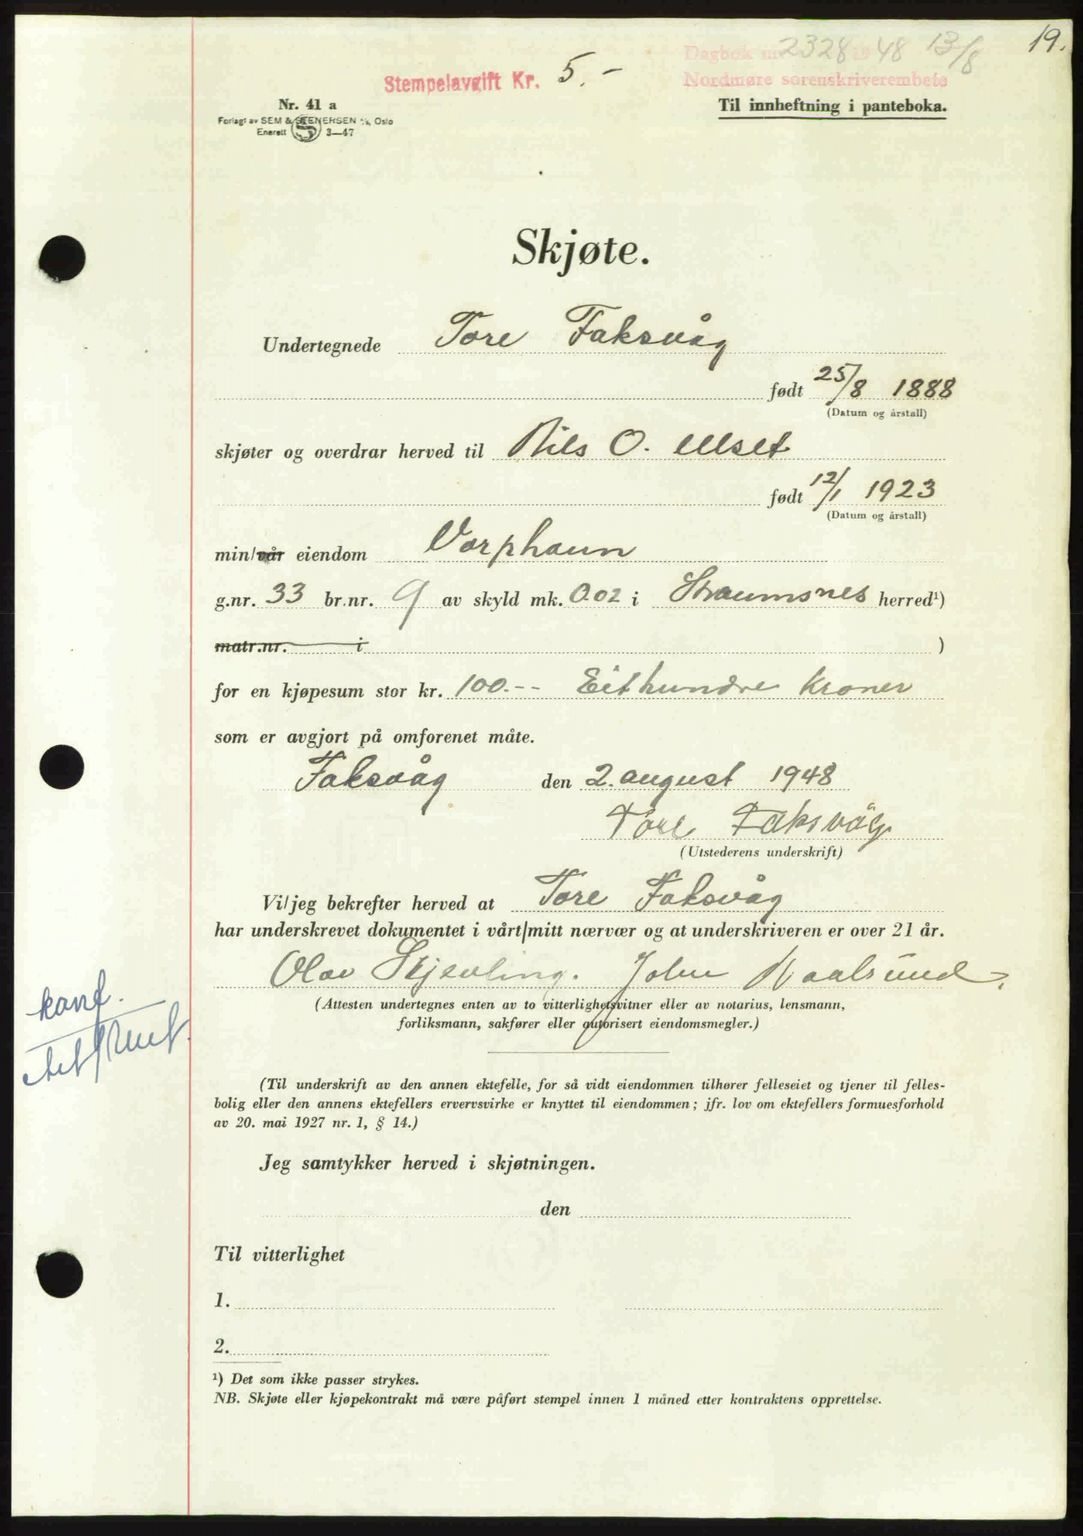 19.
Dagbok nr. 2328 1948 13/8
Stempelavgift Kr. 5.-
Nordmøre sorenskriverembete
Nr. 41 a
Til innheftning i panteboka.
Forlagt av SEM & STENERSEN A/S, Oslo
Enerett 3—47
Skjøte.
Undertegnede Tore Faksvåg
født 25/8 1888
(Datum og årstall)
skjøter og overdrar herved til Nils O. Ulset
født 12/1 1923
(Datum og årstall)
min/vår eiendom Varphaun
g.nr. 33 br.nr. 9 av skyld mk. 0.02 i Straumsnes herred¹)
matr.nr. i )
for en kjøpesum stor kr. 100.-- Eithundre kroner
som er avgjort på omforenet måte.
Faksvåg den 2. august 1948
Tore Faksvåg
(Utstederens underskrift)
Vi/jeg bekrefter herved at Tore Faksvåg
har underskrevet dokumentet i vårt/mitt nærvær og at underskriveren er over 21 år.
Olav Skjevling. John
(Attesten undertegnes enten av to vitterlighetsvitner eller av notarius, lensmann,
forliksmann, sakfører eller autorisert eiendomsmegler.)
konf.
(Til underskrift av den annen ektefelle, for så vidt eiendommen tilhører felleseiet og tjener til felles-
bolig eller den annens ektefellers ervervsvirke er knyttet til eiendommen; jfr. lov om ektefellers formuesforhold
av 20. mai 1927 nr. 1, § 14.)
Jeg samtykker herved i skjøtningen.
den
Til vitterlighet
1.
2.
¹) Det som ikke passer strykes.
NB. Skjøte eller kjøpekontrakt må være påført stempel innen 1 måned etter kontraktens opprettelse.